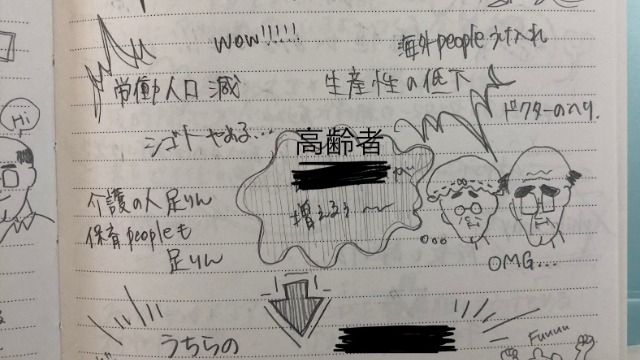 wow!!!!!
海外peopleうけ入れ
労働人口 減
生産性の低下
ドクターのハリ.
シゴトやめる...
高齢者
増えるぅ〜
Hi
介護の人 足りん
保育peopleも
足りん
OMG...
うちらの
Fuuuu